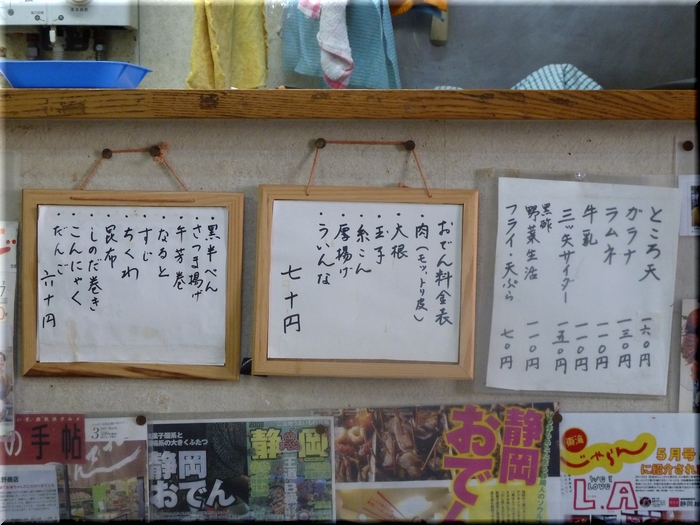 おでん料金表
・肉(モツ、トリ皮)
・大根
・玉子
・糸こん
・厚揚げ
・ういんな
七十円
・黒半ぺん
・さつま揚げ
・牛芳巻
・なると
・すじ
・ちくわ
・昆布
・しのだ巻き
・こんにゃく
・だんご
六十円
ところ天 一六〇円
ガラナ 一三〇円
ラムネ 一〇〇円
牛乳 一〇〇円
三ッ矢サイダー 一五〇円
黒酢
野菜生活 一一〇円
フライ・天ぷら 七〇円
の手帖
3
静岡
おでん
静岡
静岡
おでん
東海
じゃらん
5月号
に紹介され
WE
LOVE
L.A